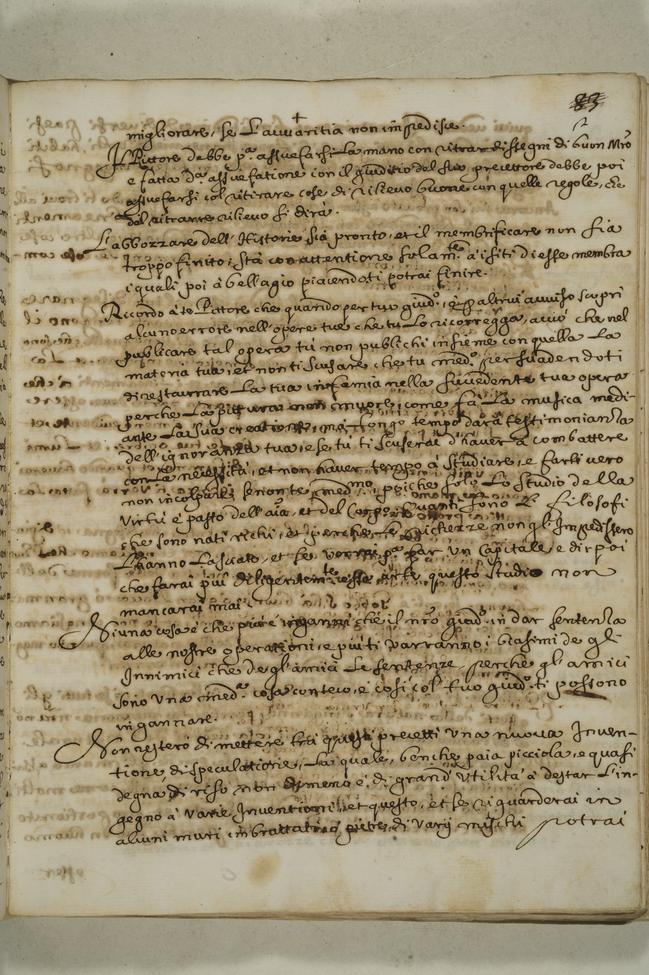 83
migliorare, se L'avvaritia non impedisce.
Il Pittore debbe pª assuefarsi La mano con ritrar disegni di buon Mro
e fatta dª assuefatione con il giuditio del suo precettore debbe poi
assuefarsi col ritrarre cose di rilievo buone con quelle regole, che
del ritrarre rilievo si dirà.
L'abbozzare dell'Historie sia pronto, et il membrificare non sia
troppo finito, stà con attentione solamte à i siti di esse membra
i quali poi à bell'agio piacendoti potrai finire.
Ricordo à te Pittore che quando per tuo giudº, ò p altrui avviso scopri
alcun errore nell'opere tue che tu Lo ricorregga, acciò che nel
publicare tal opera tu non publichi insieme con quella La
materia tua, et non ti scusare che tu medº, persuadendoti
di restaurare La tua infamia nella succedente tua opera
perche La pittura non muore, come fà La musica medi-
ante La sua creatione, mà longo tempo darà testimonianza
dell'ignoranza tua, e se tu ti scuserai d'haver à combattere
con La necessità, et non haver tempo à studiare, e farti vero
non incolpare se non te medmo, poiche solo Lo studio della
virtù è pasto dell'aīa, et del corpo quanti sono L Filosofi
che sono nati richi, et perche Le richezze non gl'Impedissero
L'hanno Lasciato, et se vorrai pª far un Capitale, e di poi
che farai più diligentemte esse, questo studio non
mancarai mai
Niuna cosa è che più c'inganni che il nro giudº in dar sentenza
alle nostre operationi, e più ti varranno i biasimi de gli
Innimici che de gl'amici Le sentenze, perche gl'amici
sono una medª cosa con teco, e così col tuo giudº ti possono
ingannare.
Non resterò di mettere trà questi precetti una nuova Inven-
tione, di speculatione, La quale, benche paia picciola, e quasi
degna di riso non dimeno è, di grand'Utilità à destar L'in-
gegno à varie Inventioni, et questo, è, se riguarderai in
alcuni muri imbrattati, ò pietre di varij mischi potrai